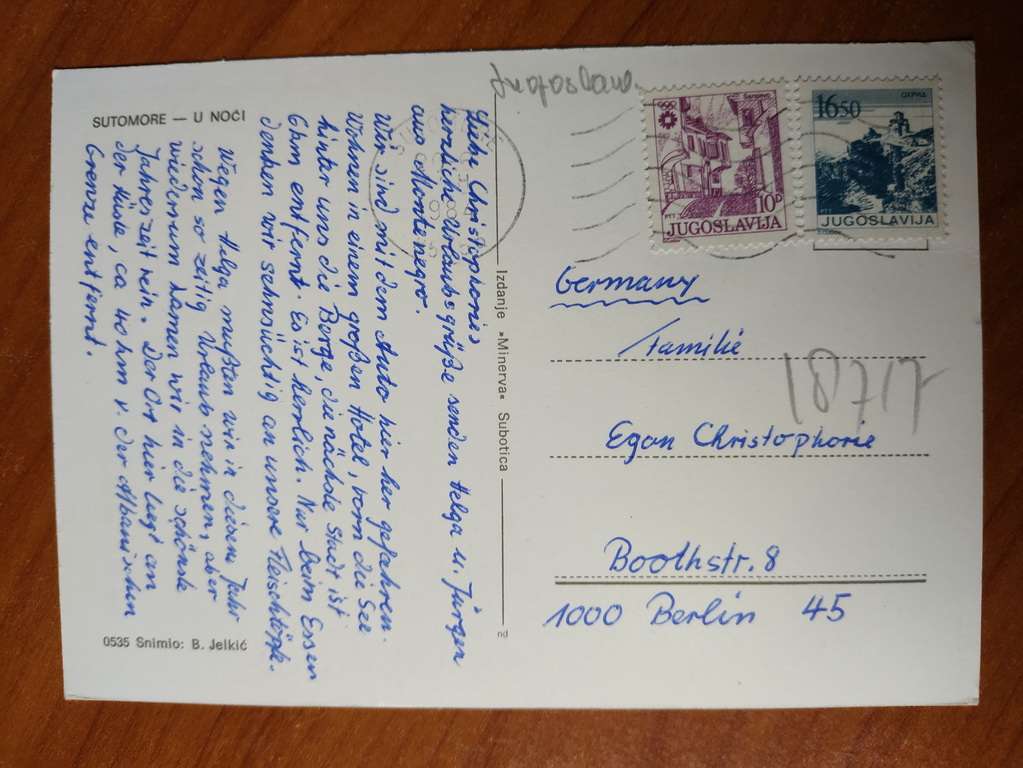 SUTOMORE — U NOĆI
Liebe Christophories
herzliche Urlaubsgrüße senden Helga u. Jürgen
aus Montenegro.
Wir sind mit dem Auto hier her gefahren.
Wohnen in einem großen Hotel, vorn die See
hinter uns die Berge, die nächste Stadt ist
6km entfernt. Es ist herrlich. Nur beim Essen
denken wir sehnsüchtig an unsere Fleischtöpfe.
Wegen Helga mußten wir in diesem Jahr
schon so zeitig Urlaub nehmen, aber
wiederum kamen wir in die schönste
Jahreszeit rein. Der Ort hier liegt an
der Küste, ca 40 km v. der Albanischen
Grenze entfernt.
0535 Snimio: B. Jelkić
Izdanje »Minerva« Subotica
nd
Jugoslaw.
Sarajevo
10P
PTT
JUGOSLAVIJA
ОХРИД
16.50
PTT
JUGOSLAVIJA
Germany
Familie
Egon Christophorie
Boothstr. 8
1000 Berlin 45